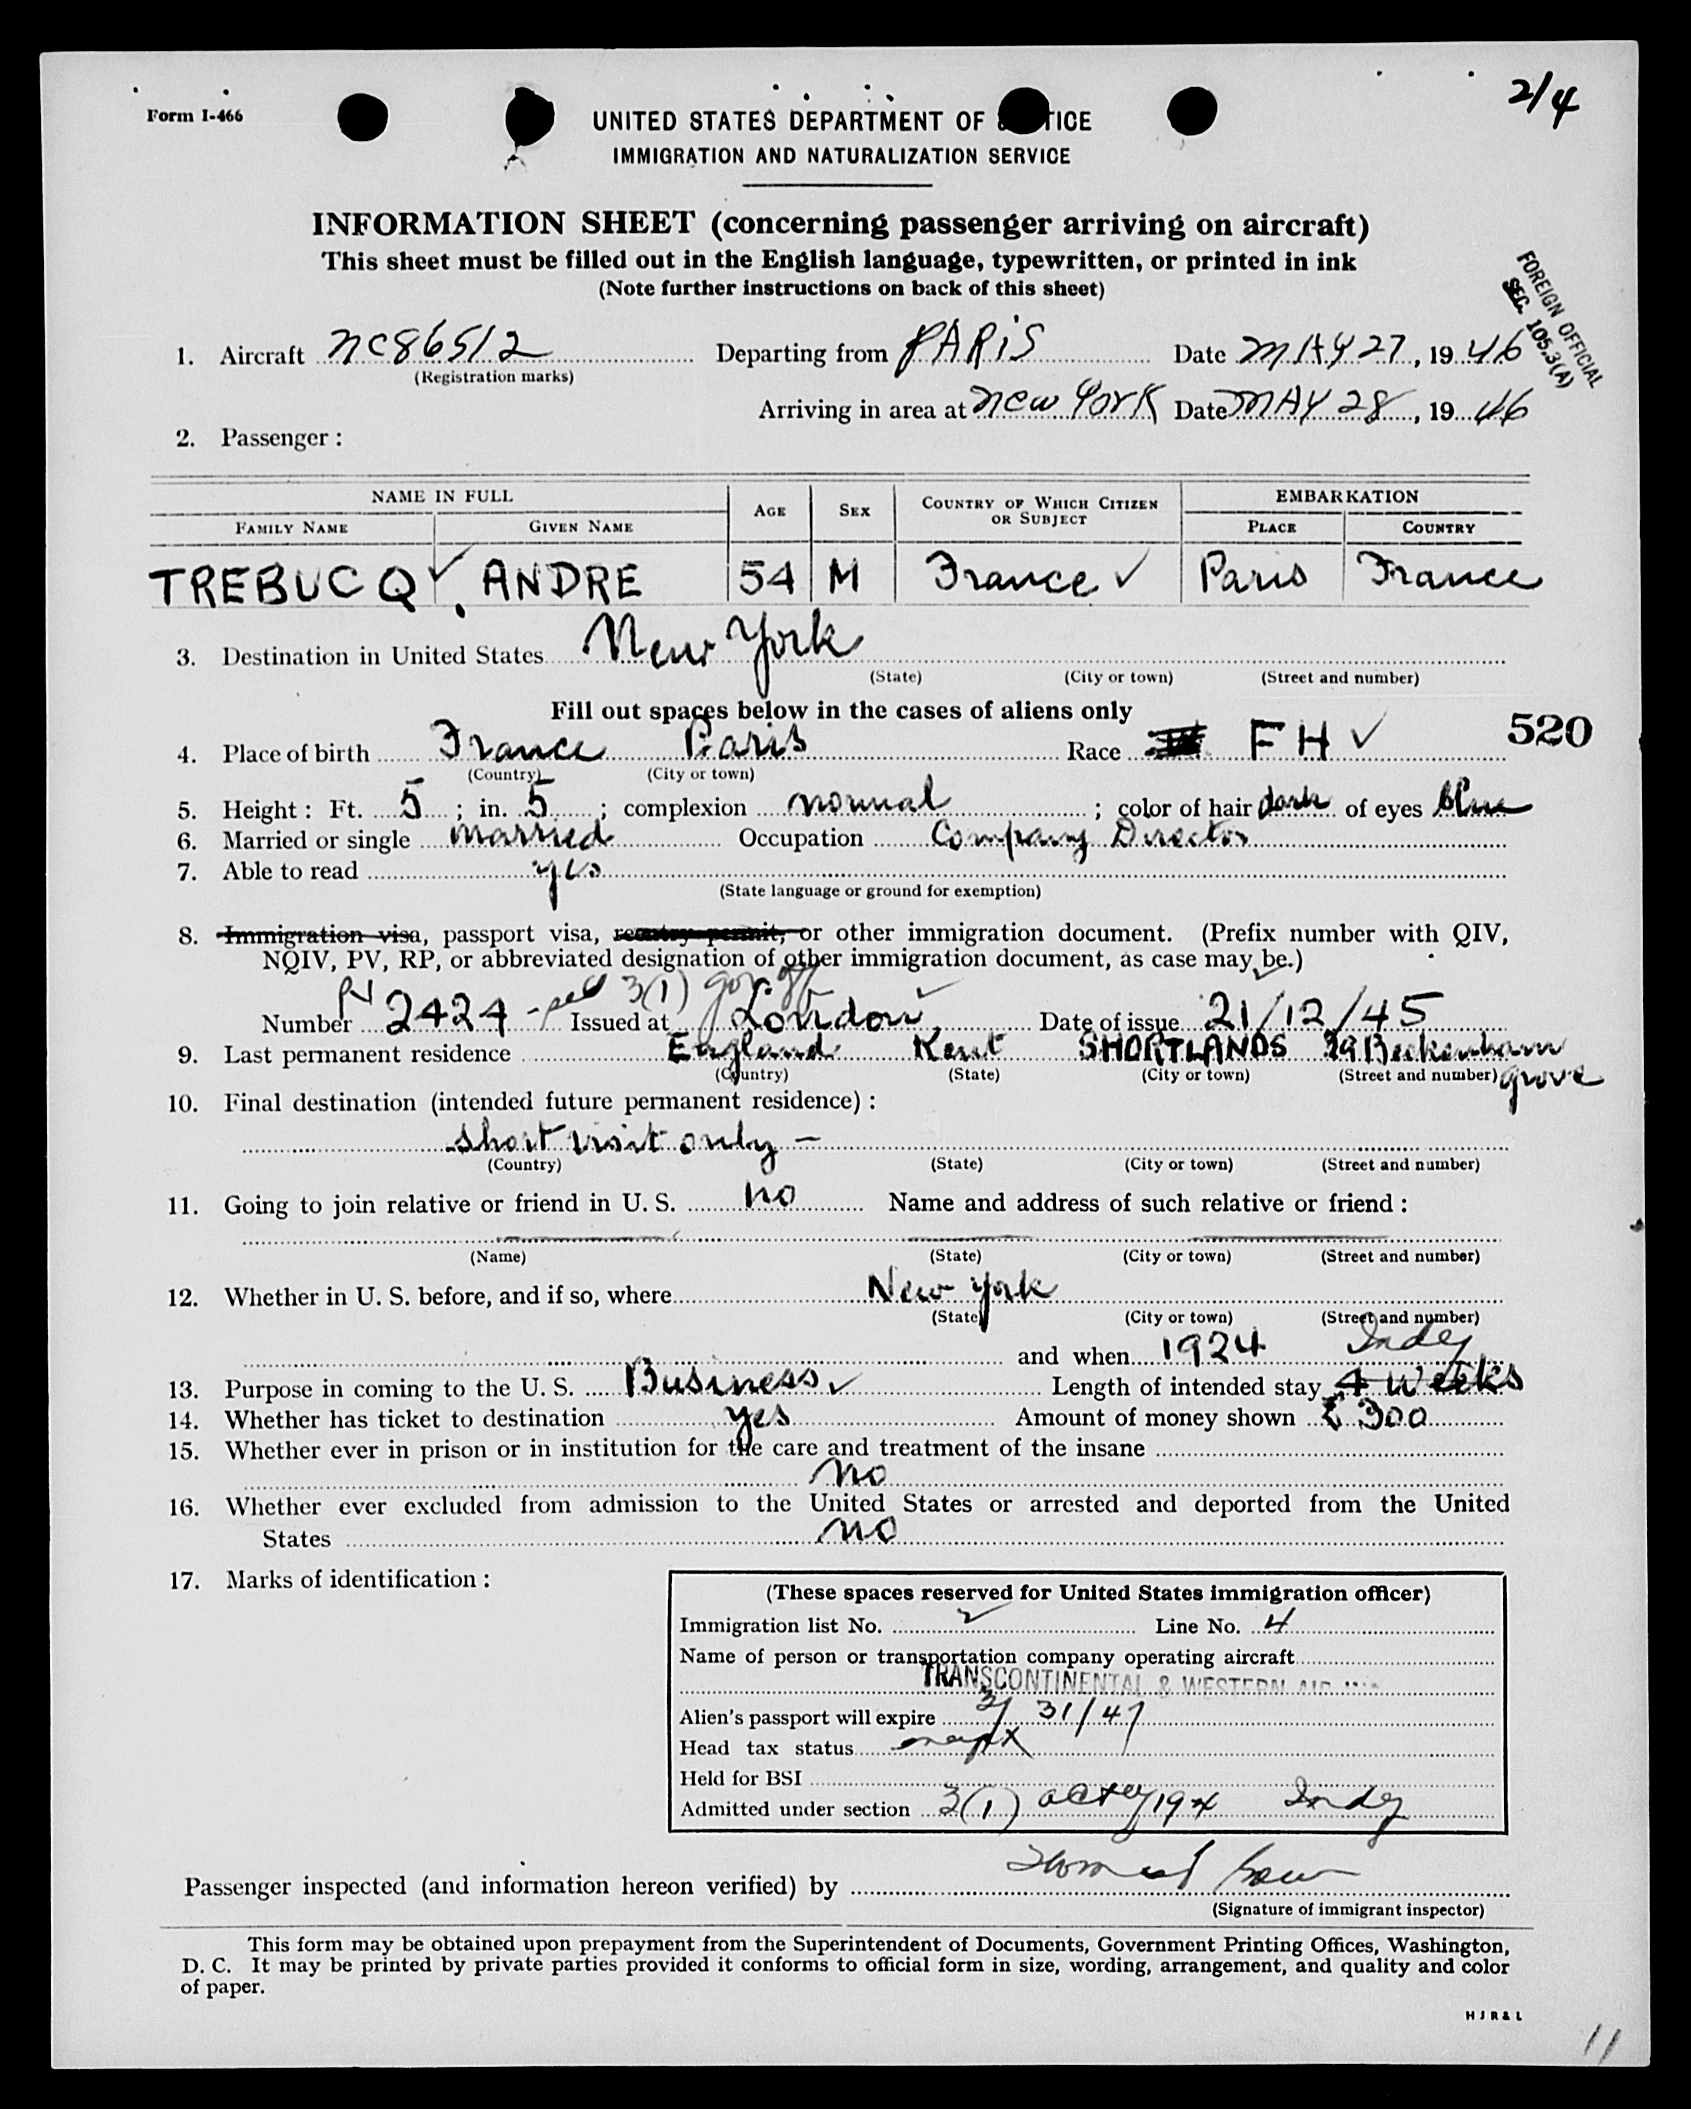 Form I-466
2/4
UNITED STATES DEPARTMENT OF TICE
IMMIGRATION AND NATURALIZATION SERVICE
INFORMATION SHEET (concerning passenger arriving on aircraft)
This sheet must be filled out in the English language, typewritten, or printed in ink
(Note further instructions on back of this sheet)
FOREIGN OFFICIAL
SEC. 105.3(A)
1. Aircraft NC86512 Departing from PARIS Date MAY 27, 1946
(Registration marks)
Arriving in area at New York Date MAY 28, 1946
2. Passenger:
NAME IN FULL AGE SEX COUNTRY OF WHICH CITIZEN OR SUBJECT EMBARKATION
FAMILY NAME GIVEN NAME PLACE COUNTRY
TREBUCQ, ANDRE 54 M France Paris France
3. Destination in United States New York
(State) (City or town) (Street and number)
Fill out spaces below in the cases of aliens only
520
4. Place of birth France Paris Race FH
(Country) (City or town)
5. Height: Ft. 5; in. 5; complexion normal; color of hair dark of eyes blue
6. Married or single married Occupation Company Director
7. Able to read yes
(State language or ground for exemption)
8. Immigration visa, passport visa, reentry permit, or other immigration document. (Prefix number with QIV,
NQIV, PV, RP, or abbreviated designation of other immigration document, as case may be.)
PV 3(1) gov. off
Number 2424 Issued at London Date of issue 21/12/45
9. Last permanent residence England Kent SHORTLANDS 39 Beckenham
(Country) (State) (City or town) (Street and number) grove
10. Final destination (intended future permanent residence):
short visit only -
(Country) (State) (City or town) (Street and number)
11. Going to join relative or friend in U. S. no Name and address of such relative or friend:
(Name) (State) (City or town) (Street and number)
12. Whether in U. S. before, and if so, where New York
(State) (City or town) (Street and number)
and when 1924 Indef
13. Purpose in coming to the U. S. Business Length of intended stay 4 weeks
14. Whether has ticket to destination yes Amount of money shown £ 300
15. Whether ever in prison or in institution for the care and treatment of the insane
no
16. Whether ever excluded from admission to the United States or arrested and deported from the United
States no
17. Marks of identification:
(These spaces reserved for United States immigration officer)
Immigration list No. 2 Line No. 4
Name of person or transportation company operating aircraft
TRANSCONTINENTAL & WESTERN AIR
Alien's passport will expire 3/31/47
Head tax status exempt
Held for BSI
Admitted under section 3(1) act of 1924 Indef
Passenger inspected (and information hereon verified) by
(Signature of immigrant inspector)
This form may be obtained upon prepayment from the Superintendent of Documents, Government Printing Offices, Washington,
D. C. It may be printed by private parties provided it conforms to official form in size, wording, arrangement, and quality and color
of paper.
H J R & L
11